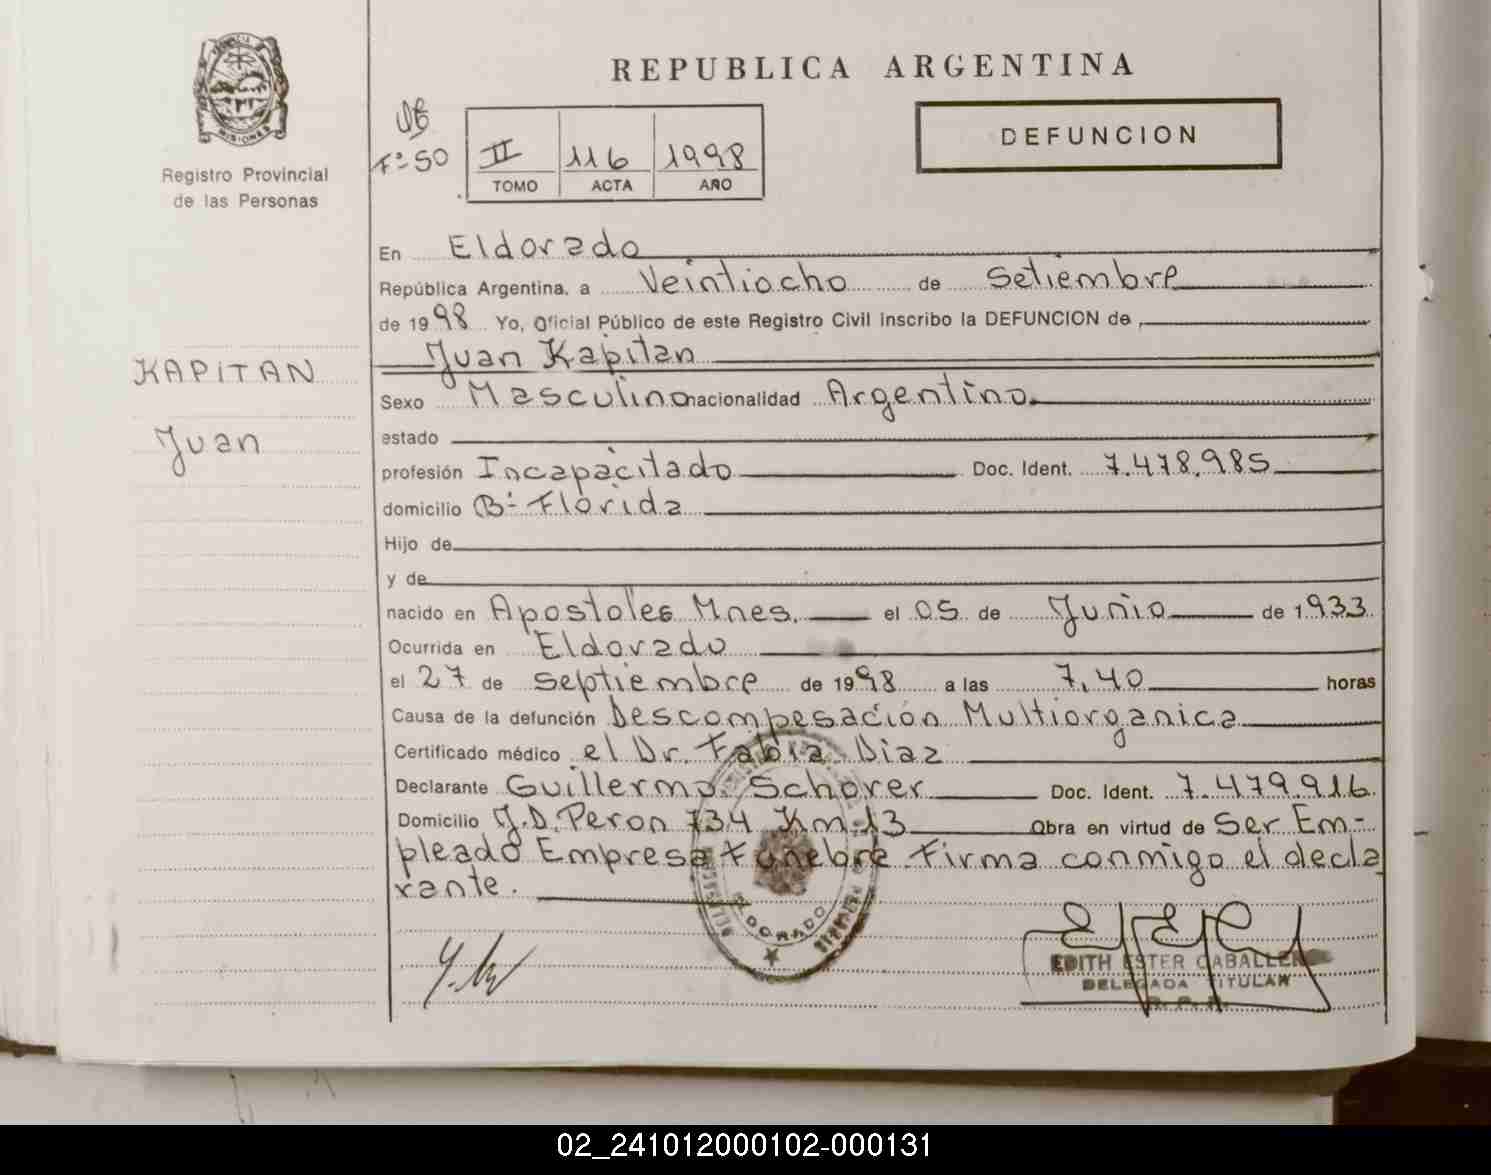 REPUBLICA ARGENTINA
DEFUNCION
Fº 50
II 116 1998
TOMO ACTA AÑO
MISIONES
Registro Provincial
de las Personas
KAPITAN
Juan
En Eldorado
República Argentina, a Veintiocho de Setiembre
de 1998 Yo, Oficial Público de este Registro Civil inscribo la DEFUNCION de
Juan Kapitan
Sexo Masculino nacionalidad Argentino
estado
profesión Incapacitado Doc. Ident. 7.478.985
domicilio Bº Florida
Hijo de
y de
nacido en Apostoles Mnes. el 05 de Junio de 1933
Ocurrida en Eldorado
el 27 de septiembre de 1998 a las 7,40 horas
Causa de la defunción Descompesación Multiorganica
Certificado médico el Dr. Fabia Diaz
Declarante Guillermo Schorer Doc. Ident. 7.479.916
Domicilio J.D. Peron 734 Km 13 Obra en virtud de Ser Em-
pleado Empresa Funebre Firma conmigo el decla
rante.
ELDORADO
EDITH ESTER CABALLERO
DELEGADA TITULAR
R. P. P.
02_241012000102-000131